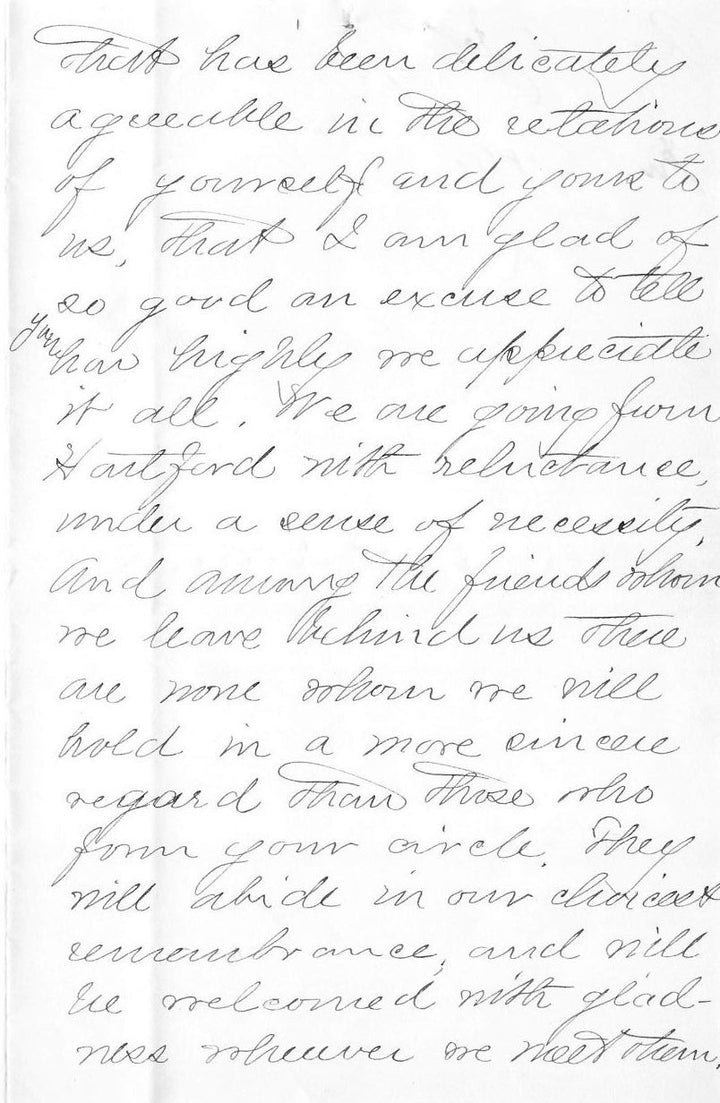 that has been delicately
agreeable in the relations
of yourself and yours to
us, that I am glad of
so good an excuse to tell
you how highly we appreciate
it all. We are going from
Hartford with reluctance,
under a sense of necessity,
And among the friends whom
we leave behind us there
are none whom we will
hold in a more sincere
regard than those who
form your circle. They
will abide in our choicest
remembrance, and will
be welcomed with glad-
ness whenever we meet them.